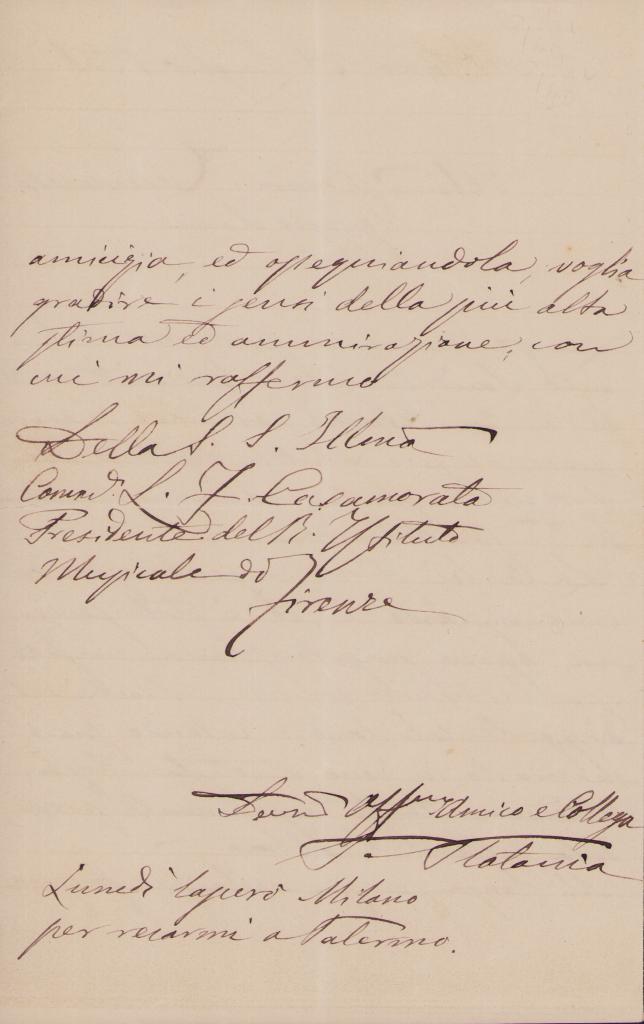 amicizia, ed ossequiandola, voglia
gradire i sensi della più alta
stima ed ammirazione, con
cui mi raffermo
Della S. S. Illma
Commr. L. F. Casamorata
Presidente del R. Istituto
Musicale di
Firenze
Devmo Affmo Amico e Collega
Platania
Lunedì lascerò Milano
per recarmi a Palermo.